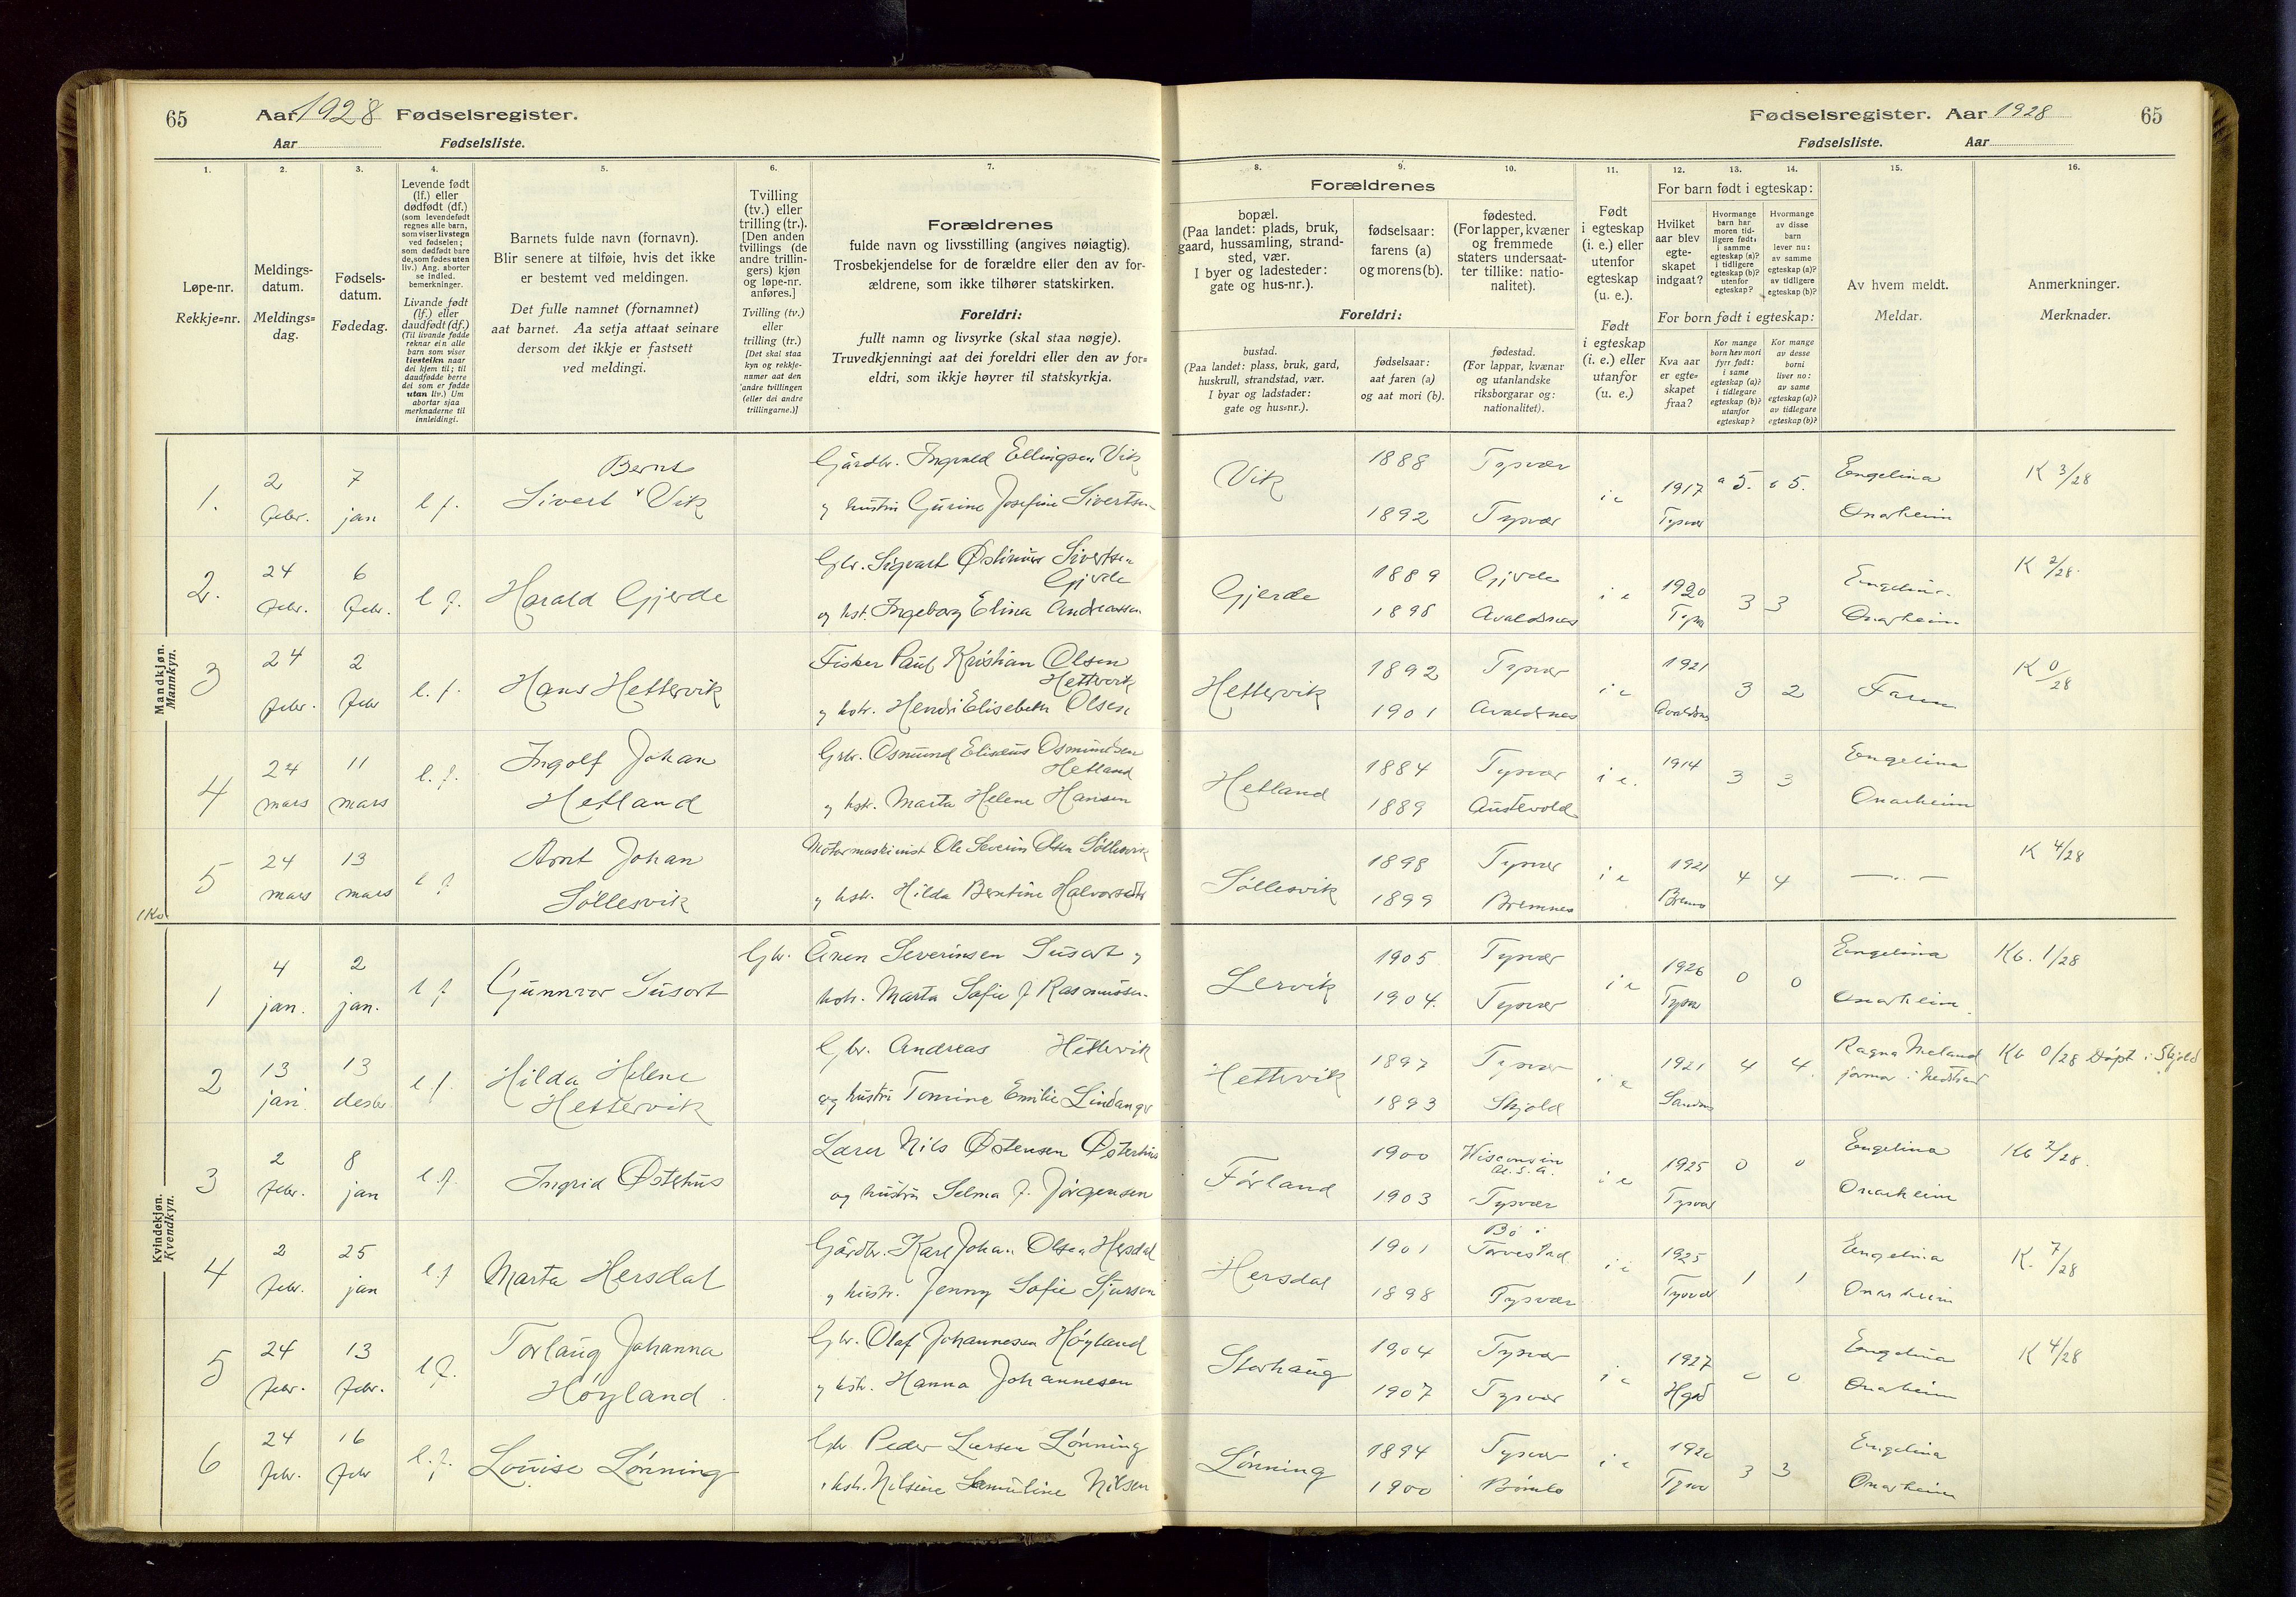 65 Aar 1928 Fødselsregister.
Aar Fødselsliste.
Fødselsregister. Aar 1928 65
Fødselsliste. Aar
1. 2. 3. 4. 5. 6. 7. 8. 9. 10. 11. 12. 13. 14. 15. 16.
Løpe-nr.
Rekkje=nr.
Meldings-
datum.
Meldings=
dag.
Fødsels-
datum.
Fødedag.
Levende født
(lf.) eller
dødfødt (df.)
(som levendefødt
regnes alle barn,
som viser livstegn
ved fødselen;
som dødfødt bare
de, som fødes uten
liv.) Ang. aborter
se indled.
bemerkninger.
Livande født
(lf.) eller
daudfødt (df.)
(Til livande fødde
reknar ein alle
barn som viser
livsteikn naar
dei kjem til; til
daudfødde berre
dei som er fødde
utan liv.) Um
abortar sjaa
merknaderne til
innleidingi.
Barnets fulde navn (fornavn).
Blir senere at tilføie, hvis det ikke
er bestemt ved meldingen.
Det fulle namnet (fornamnet)
aat barnet. Aa setja attaat seinare
dersom det ikkje er fastsett
ved meldingi.
Tvilling
(tv.) eller
trilling (tr.).
[Den anden
tvillings (de
andre trillin-
gers) kjøn
og løpe-nr.
anføres.]
Tvilling (tv.)
eller
trilling (tr.)
[Det skal staa
kyn og rekkje-
numer aat den
andre tvillingen
(eller dei andre
trillingarne.)]
Forældrenes
fulde navn og livsstilling (angives nøiagtig).
Trosbekjendelse for de forældre eller den av for-
ældrene, som ikke tilhører statskirken.
Foreldri:
fullt namn og livsyrke (skal staa nøgje).
Truvedkjenningi aat dei foreldri eller den av for=
eldri, som ikkje høyrer til statskyrkja.
Forældrenes
bopæl.
(Paa landet: plads, bruk,
gaard, hussamling, strand-
sted, vær.
I byer og ladesteder:
gate og hus-nr.).
fødselsaar:
farens (a)
og morens (b).
fødested.
(For lapper, kvæner
og fremmede
staters undersaat-
ter tillike: natio-
nalitet).
Foreldri:
bustad.
(Paa landet: plass, bruk, gard,
huskrull, strandstad, vær.
I byar og ladstader:
gate og hus=nr.).
fødselsaar:
aat faren (a)
og aat mori (b).
fødestad.
(For lappar, kvænar
og utanlandske
riksborgarar og:
nationalitet).
Født
i egteskap
(i. e.) eller
utenfor
egteskap
(u. e.).
Født
i egteskap
(i. e.) eller
utanfor
(u. e.)
For barn født i egteskap:
Hvilket
aar blev
egte-
skapet
indgaat?
Hvormange
barn har
moren tid-
ligere født:
i samme
egteskap (a)?
i tidligere
egteskap (b)?
utenfor
egteskap?
Hvormange
av disse
barn
lever nu:
av samme
egteskap (a)?
av tidligere
egteskap (b)?
For born født i egteskap:
Kva aar
er egte=
skapet
fraa?
Kor mange
born hev mori
fyrr født:
i same
egteskap (a)?
i tidlegare
egteskap (b)?
utanfor
egteskap?
Kor mange
av desse
borni
liver no:
av same
egteskap (a)?
av tidlegare
egteskap (b)?
Av hvem meldt.
Meldar.
Anmerkninger.
Merknader.
Mandkjøn.
Mannkyn.
1. 2 febr. 7 jan l. f.
Bernt
Sivert Vik
Gårdbr. Ingvald Ellingsen Vik
og hustru Gurine Josefine Sivertsen
Vik 1888 Tysvær
1892 Tysvær
i e 1917 Tysvær a 5. a 5. Engelina Onarheim K 3/28
2. 24 febr. 6 febr. l. f.
Harald Gjerde
Gbr. Sigvart Østinius Sivertsen
Gjerde
og hst. Ingeborg Elina Andreassen
Gjerde 1889 Gjerde
1898 Avaldsnes
i e 1920 3 3 Engelina Onarheim K 2/28.
3 24 febr. 2 febr l. f.
Hans Hettervik
Fisker Paul Kristian Olsen
Hettervik
og hstr. Hendri Elisebeth Olsen
Hettervik 1892 Tysvær
1901 Avaldsnes
i e 1921 3 2 Faren K 0/28
4 24 mars 11 mars l. f.
Ingolf Johan
Hetland
Gbr. Osmund Eliseus Osmundsen
Hetland
og hstr. Marta Helene Hansen
Hetland 1884 Tysvær
1889 Austevold
i e. 1914 3 3 Engelina Onarheim
5 24 mars 13 mars l f
Arnt Johan
Søllesvik
Motormaskinist Ole Severin Olsen Søllesvik
og hstr. Hilda Berntine Halvorsdtr
Søllesvik 1898 Tysvær
1899 Bremnes
i e 1921 4 4 — " — K 4/28
Kvindekjøn.
Kvendkyn.
1 4 jan. 2 jan. l f
Gunnvor Susort
Gbr. Ånen Severinsen Susort og
hstr. Marta Sofie f. Rasmussen
Lervik 1905 Tysvær
1904. Tysvær
i e 1926 Tysvær 0 0 Engelina Onarheim. Kb. 1/28
2 13 jan. 13 desbr l. f.
Hilda Helene
Hettervik
Gbr. Andreas Hettervik
og hustru Tomine Emilie
Hettervik 1897 Tysvær
1893 Skjold
i e 1921 4 4. Ragna Meland jormor i Nedstrand Kb 0/28 Døpt i Skjold
3 2 febr. 8 jan l. f.
Ingrid Østehus
Lærer Nils Østensen Østerhus
og hustru Selma f. Jørgensen
Førland 1900 Wisconsin
U.S.A.
1903 Tysvær
i e 1925 Tysvær 0 0 Engelina Onarheim Kb 2/28.
4 2 febr. 25 jan l. f
Marta Hersdal
Gårdbr. Karl Johan Olsen Hersdal
og hustr. Jenny Sofie Sjursen
Hersdal 1901 Bø i
Torvestad.
1898 Tysvær
i e 1925 Tysvær 1 1 Engelina Onarheim K. 7/28
5 24 febr. 13 febr. l f.
Torlaug Johanna
Høyland
Gbr. Olaf Johannesen Høyland
og hstr. Hanna Johannesen
Storhaug 1904 Tysvær
1907 Tysvær
i e 1927 0 0 Engelina Onarheim K 4/28
6 24 febr. 16 febr l. f.
Louise Lønning
Gbr Peder Larsen Lønning
hstr. Nilsine Samuline Nilsen
Lønning 1894 Tysvær
1900 Bømlo
i e 3 3 Engelina Onarheim